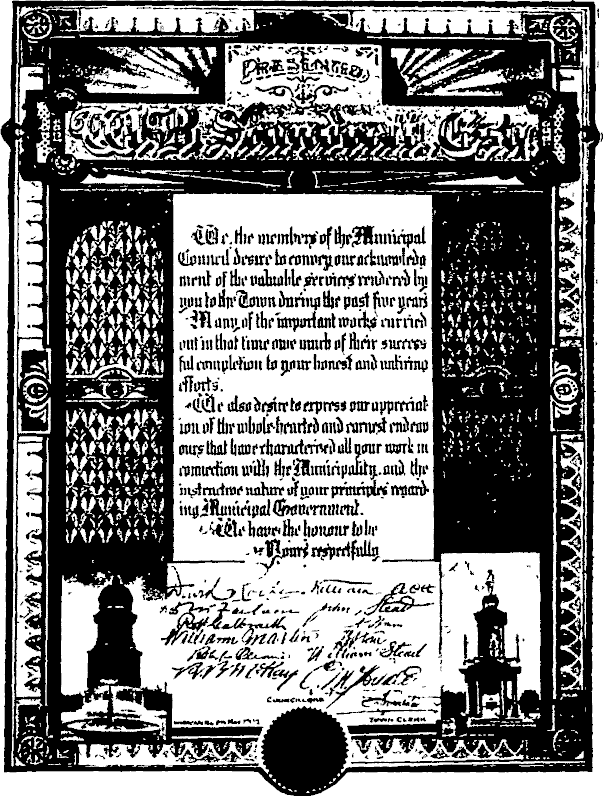 PRESENTED
We, the members of the Municipal
Council desire to convey our acknowledg
ment of the valuable services rendered by
you to the Town during the past five years
Many of the important works carried
out in that time owe much of their success
ful completion to your honest and untiring
efforts.
We also desire to express our appreciat
ion of the whole-hearted and earnest endeav
ours that have characterised all your work in
connection with the Municipality, and the
instructive nature of your principles regard-
ing Municipal Government.
We have the honour to be
Yours respectfully
David
John Stead
William Martin
William Stead
COUNCILLORS
TOWN CLERK